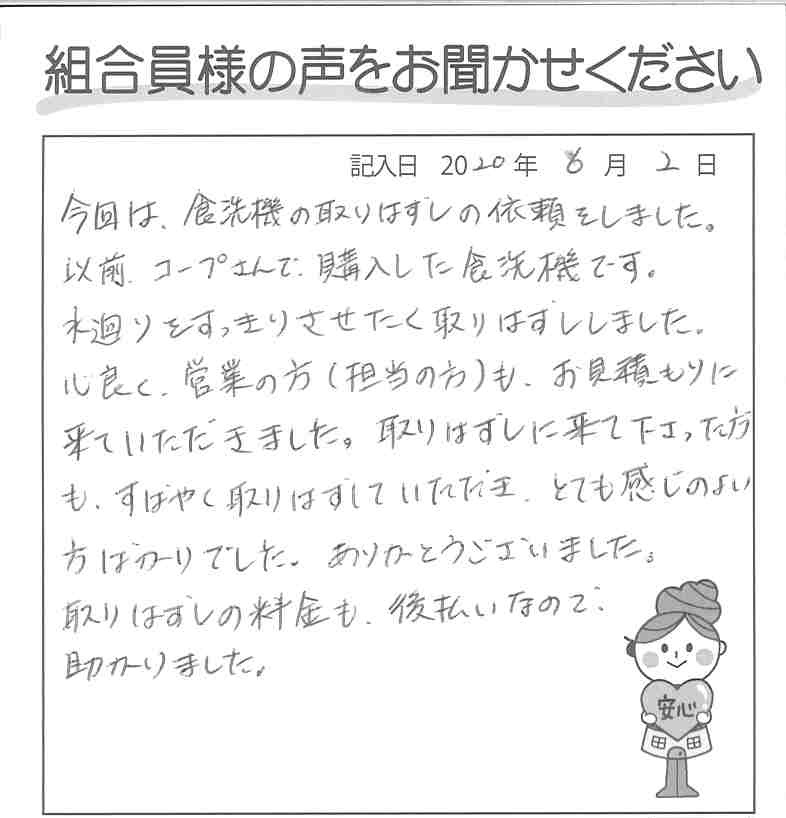 組合員様の声をお聞かせください
記入日 2020年 6月 2日
今回は、食洗機の取りはずしの依頼をしました。
以前、コープさんで、購入した食洗機です。
水廻りをすっきりさせたく取りはずししました。
心良く、営業の方(担当の方)も、お見積もりに
来ていただきました。取りはずしに来て下さった方
も、すばやく取りはずしていただき、とても感じのよい
方ばかりでした。ありがとうございました。
取りはずしの料金も、後払いなので、
助かりました。
安心